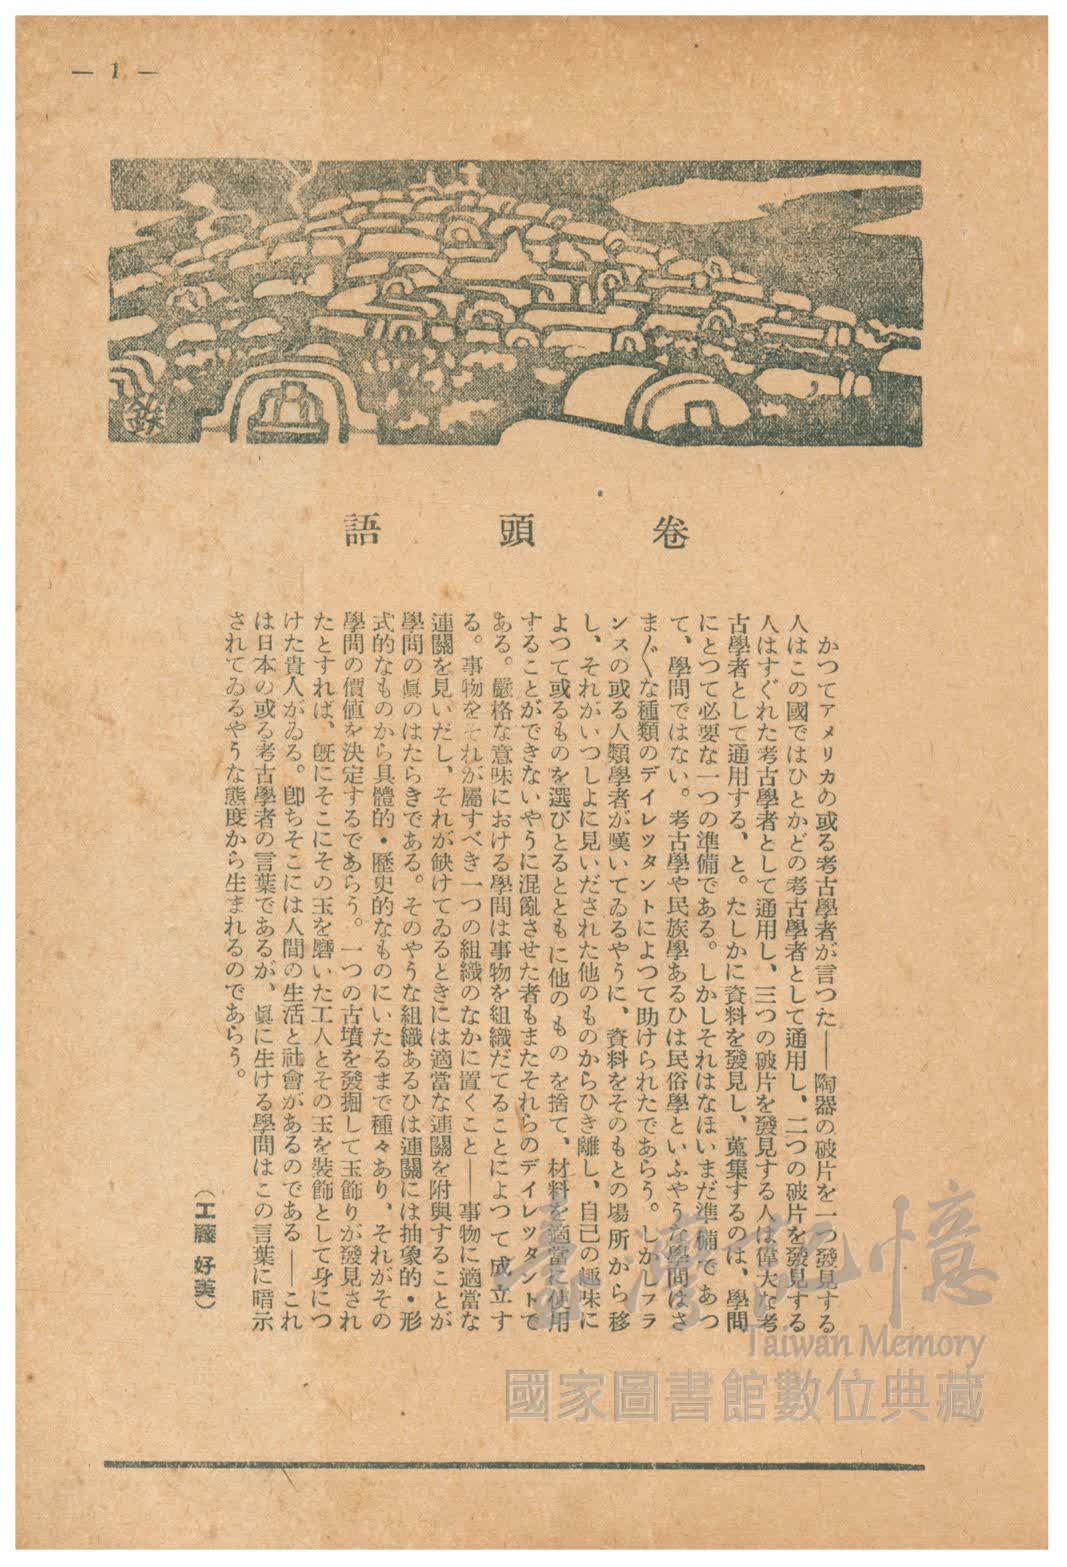 — 1 —
卷頭語
かつてアメリカの或る考古學者が言つた——陶器の破片を一つ發見する
人はこの國ではひとかどの考古學者として通用し、二つの破片を發見する
人はすぐれた考古學者として通用し、三つの破片を發見する人は偉大な考
古學者として通用する、と。たしかに資料を發見し、蒐集するのは、學問
にとつて必要な一つの準備である。しかしそれはなほいまだ準備であつ
て、學問ではない。考古學や民族學あるひは民俗學といふやうな學問はさ
まざまな種類のデイレッタントによつて助けられたであらう。しかしフラ
ンスの或る人類學者が嘆いてゐるやうに、資料をそのもとの場所から移
し、それがいつしよに見いだされた他のものからひき離し、自己の趣味に
よつて或るものを選びとるとともに他のものを捨て、材料を適當に使用
することができないやうに混亂させた者もまたそれらのデイレッタントで
ある。嚴格な意味における學問は事物を組織だてることによつて成立す
る。事物をそれが屬すべき一つの組織のなかに置くこと——事物に適當な
連關を見いだし、それが缺けてゐるときには適當な連關を附與することが
學問の眞のはたらきである。そのやうな組織あるひは連關には抽象的・形
式的なものから具體的・歷史的なものにいたるまで種々あり、それがその
學問の價値を決定するであらう。一つの古墳を發掘して玉飾りが發見され
たとすれば、既にそこにその玉を磨いた工人とその玉を裝飾として身につ
けた貴人がゐる。卽ちそこには人間の生活と社會があるのである——これ
は日本の或る考古學者の言葉であるが、眞に生ける學問はこの言葉に暗示
されてゐるやうな態度から生まれるのであらう。
（工藤好美）
臺灣記憶
Taiwan Memory
國家圖書館數位典藏